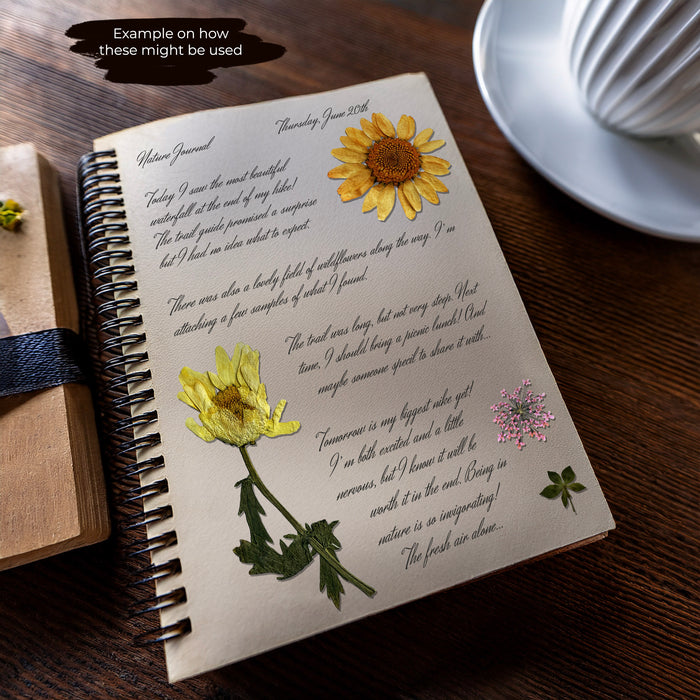 Example on how
these might be used
Thursday, June 20th
Nature Journal
Today I saw the most beautiful
waterfall at the end of my hike!
The trail guide promised a surprise
but I had no idea what to expect.
There was also a lovely field of wildflowers along the way. I'm
attaching a few samples of what I found.
The trail was long, but not very steep. Next
time, I should bring a picnic lunch! And
maybe someone specil to share it with...
Tomorrow is my biggest nike yet!
I'm both excited and a little
nervous, but I know it will be
worth it in the end. Being in
nature is so invigorating!
The fresh air alone...